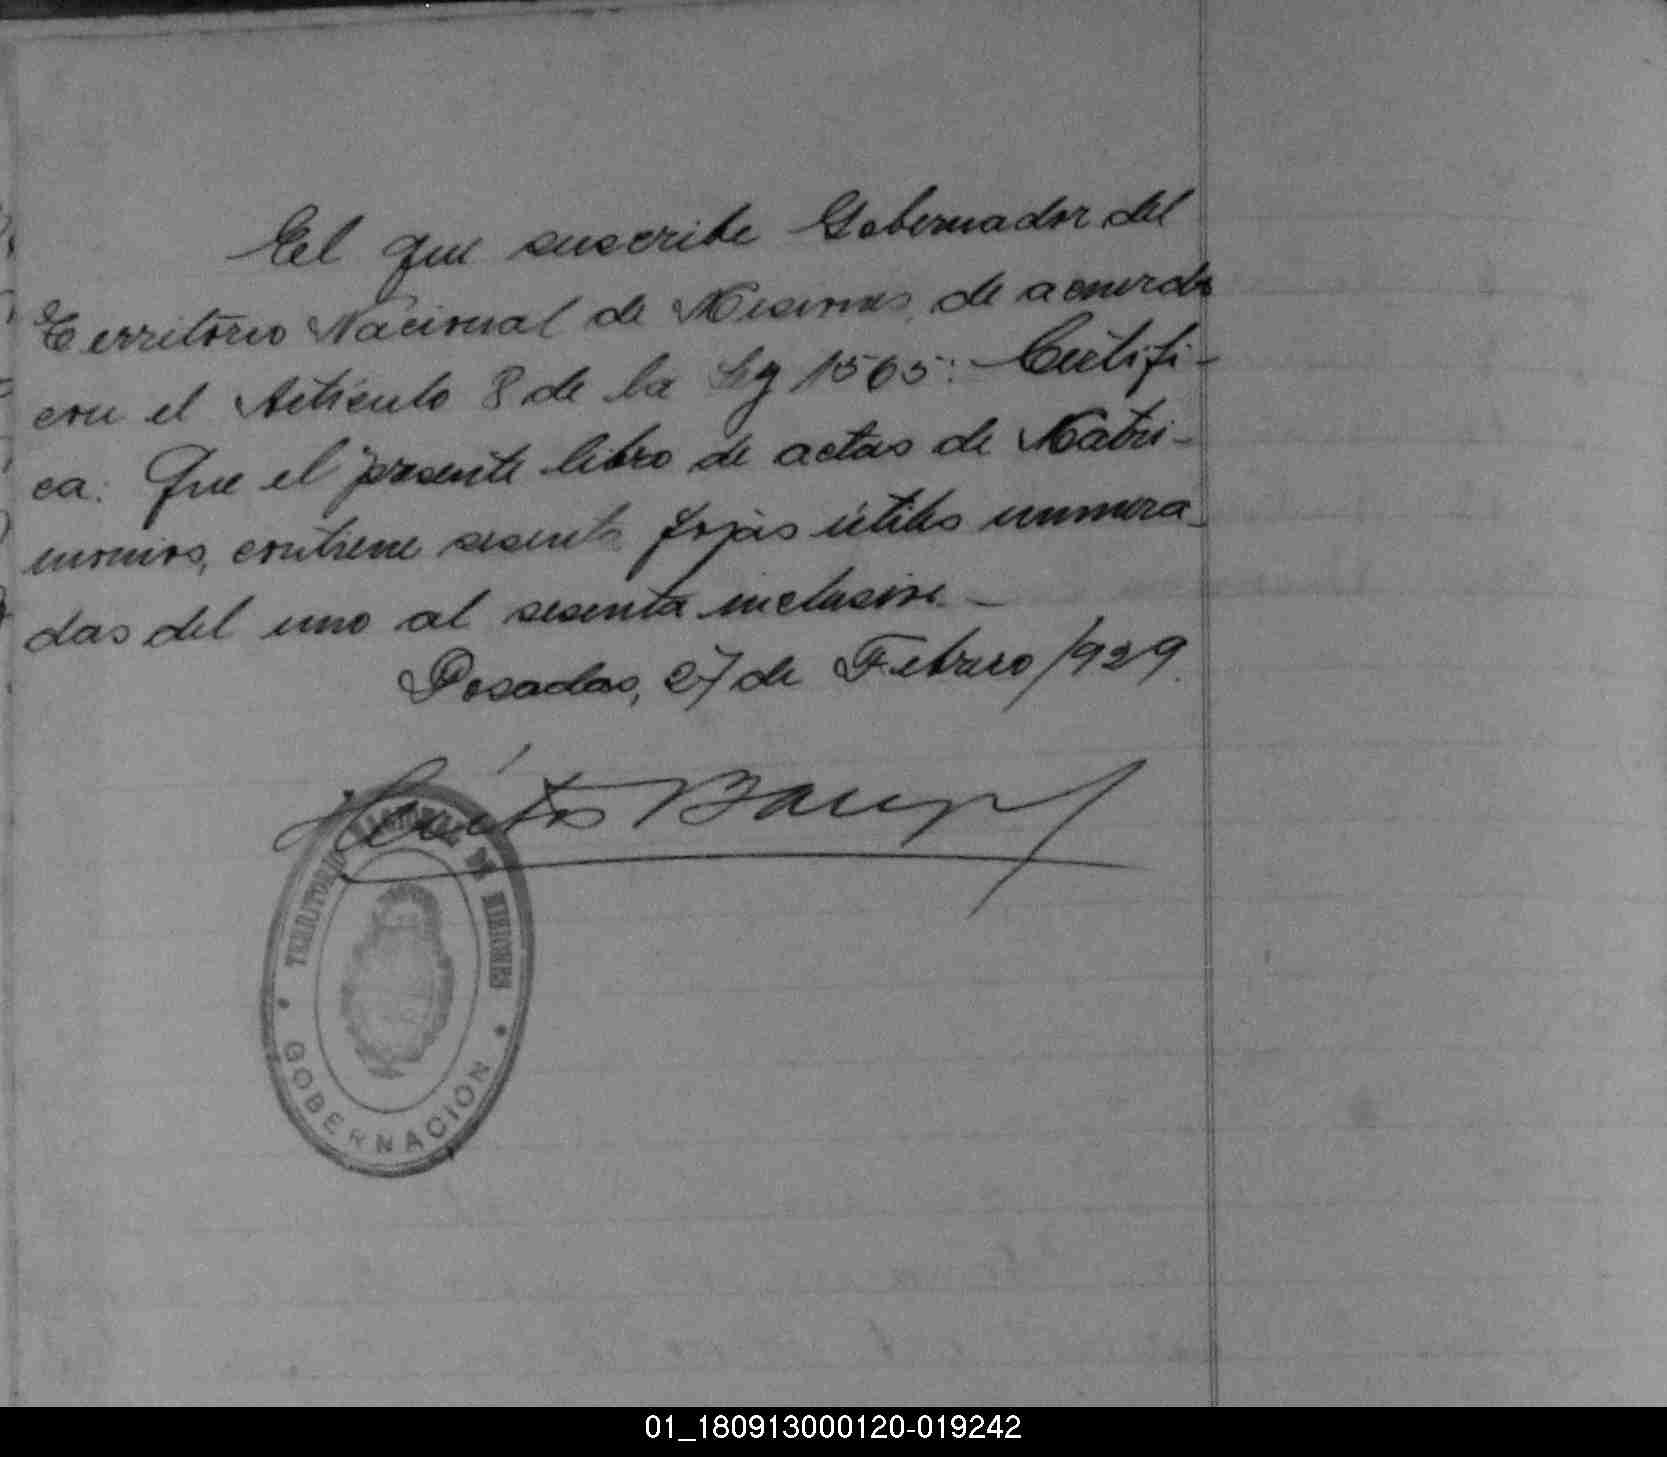 El que suscribe Gobernador del
Territorio Nacional de Misiones, de acuerdo
con el Artículo 8 de la Ley 1565: Certifi-
ca: Que el presente libro de actas de Matri-
monios, contiene sesenta fojas útiles numera-
das del uno al sesenta inclusive.-
Posadas, 27 de Febrero 1929.
Héctor Barreyro
TERRITORIO NACIONAL DE MISIONES
GOBERNACION
01_180913000120-019242